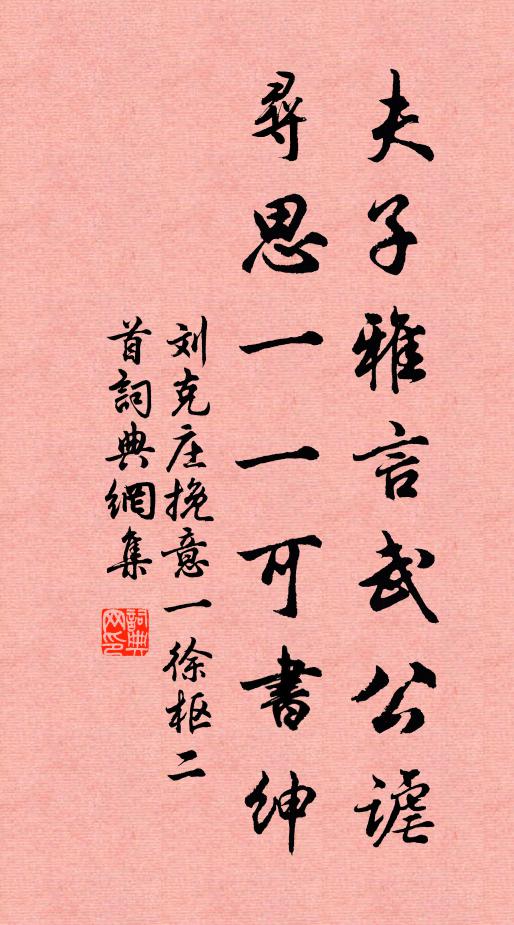 夫子雅言武公謔
尋思一一可書紳
刘克庄挽意一徐枢二
首詞典網集
詞典网印